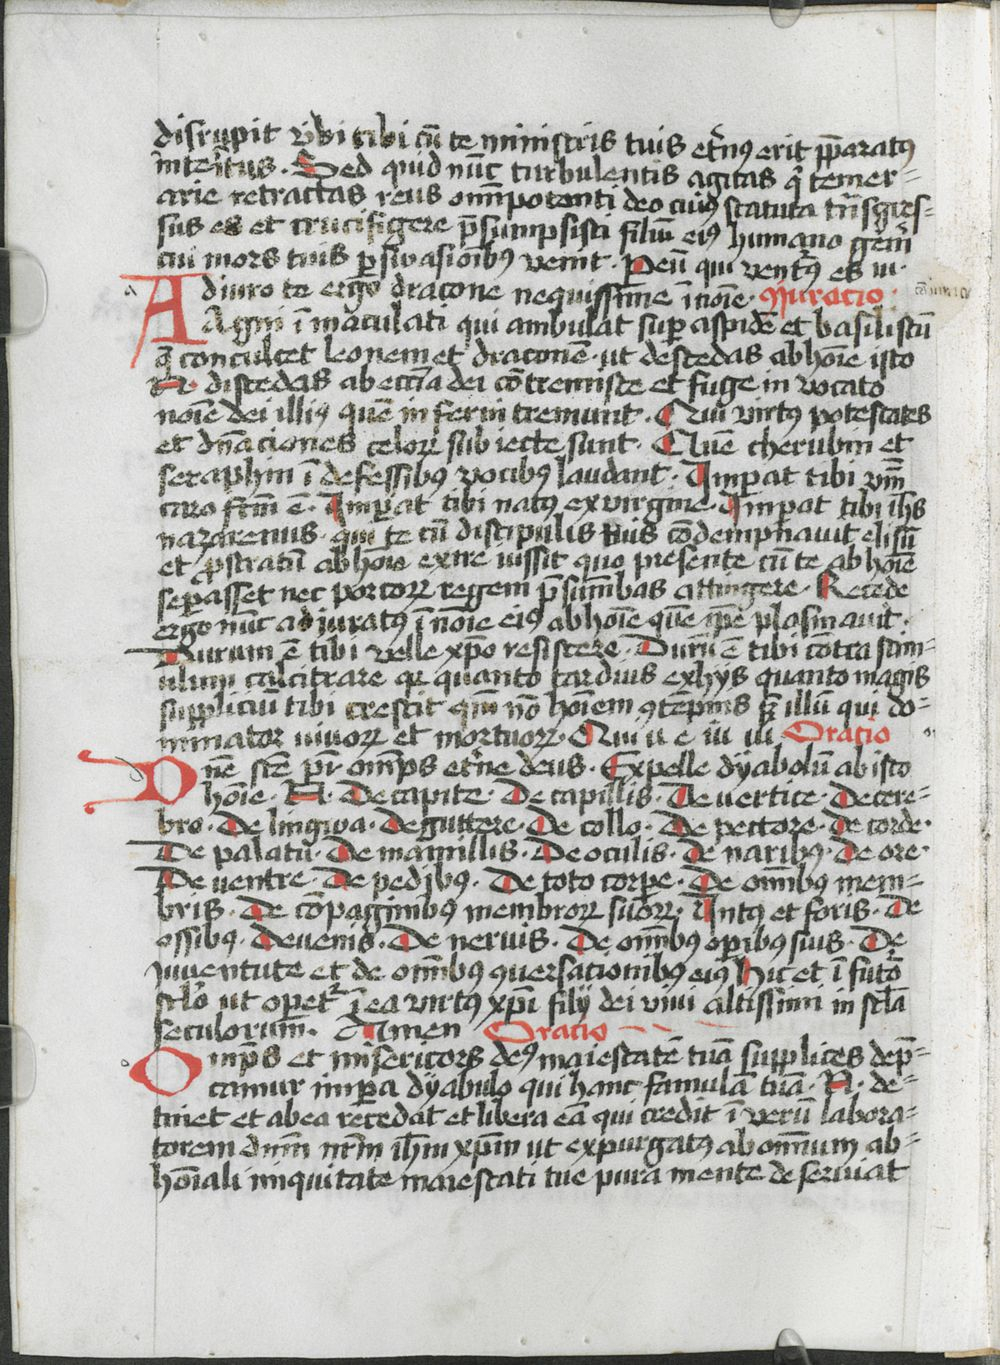 disrupit vbi tibi cũ te ministris tuis et̾nꝰ erit pp̃aratꝰ
int̾itus · Sed quid nũc turbulentis agitas q̃ temer⸗
arie retractas reus om̃potenti deo cuiꝰ statuta trãsgres⸗
sus es et crucifigere p̃sumpsisti filiũ eiꝰ humano gen̾i
cui mors tuis ꝑswasionibꝰ venit · Peũ qui ventꝰ es iu ·
Adiuro te ergo dracone nequissime ĩ noĩe · 
Agni ĩ maculati qui ambulat suꝑ aspidẽ et basiliscũ
q̃ conculcet leonem et draconẽ · ut descedas ab hoĩe isto
N · discedas ab eccĩa dei cõtremiste et fuge in vocato
noĩe dei illiꝰ quẽ inferiu tremunt · Cui virtꝰ potestates
et dñaciones celoꝝ subiecte sunt · Quẽ cherubin et
seraphin ĩ defessibꝰ vocibꝰ laudant · Imꝑat tibi vm̃
caro fc̃m ẽ · Imꝑat tibi natꝰ ex virgine · Imꝑat tibi ih̃s
nazarenus · qui te cũ discipulis suis cõdempnauit elisũ
et ꝓstratũ ab hoĩe exire iussit quo presente cũ te ab hoĩe
seꝑasset nec porcoꝝ regem p̃sum̃bas attingere · Recede
ergo nũc adiuratꝰ ĩ noĩe eiꝰ ab hoĩe quẽ ip̃e plasmauit ·
Durum ẽ tibi velle xp̃o resistere · Durũ ẽ tibi cõtra stim⸗
ulum calcitrare qꝛ quanto tardius exhys quanto magis
suppliciũ tibi crescit qm̃ nõ hoĩem ꝯtẽpnis sꝫ illũ qui do⸗
minator viuoꝝ et mortuoꝝ · Qui u e iu iu Oracio
Dñe sc̃e pr̃ om̃ps et̾ne deus · Expelle dyabolũ ab isto
hoĩe · N · De capite · De capillis · De vertice · De cere⸗
bro · De lingwa · De guttere · De collo · De pectore · de corde ·
De palatu · De mamillis · De oculis · de naribꝰ · De ore ·
De ventre · De pedibꝰ · De toto corpe · De om̃ibus mem⸗
bris · De cõpaginibꝰ membroꝝ suoꝝ · Intꝰ et foris · De
ossibꝰ · De venis · De neruis · De om̃ibus oꝑibus suis · De
iuuentute et de om̃ibus ꝯuersationibꝰ eiꝰ hic et ĩ futõ
sclõ ut opet̾ ĩ ea virtus xp̃i filij dei viui altissimi in sc̃la
seculorum · Amen Oracio
Om̃ps et misericors deꝰ maiestatẽ tuã supplices dep̃⸗
camur imꝑa dyabulo qui hanc famulã tuã · N · de⸗
tinet et ab ea recedat et libera eã qui credit ĩ verũ labora⸗
torem dñm nr̃m ih̃m xp̃m ut expurgatꝰ ab omnium ab⸗
hoĩali iniquitate maiestati tue pura mente deseruiat